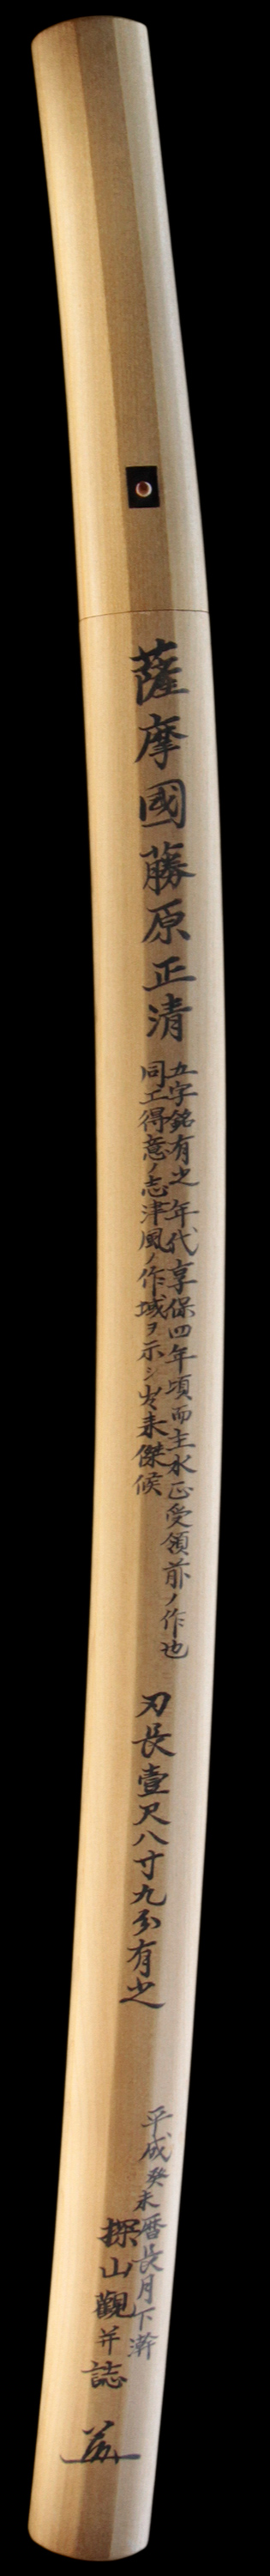 薩摩國藤原正清
五字銘有之年代享保四年頃而主水正受領前ノ作也
同工得意ノ志津風ノ作域ヲ示シ出来傑候
刃長壹尺八寸九分有之
平成癸未暦長月下澣
探山觀并誌